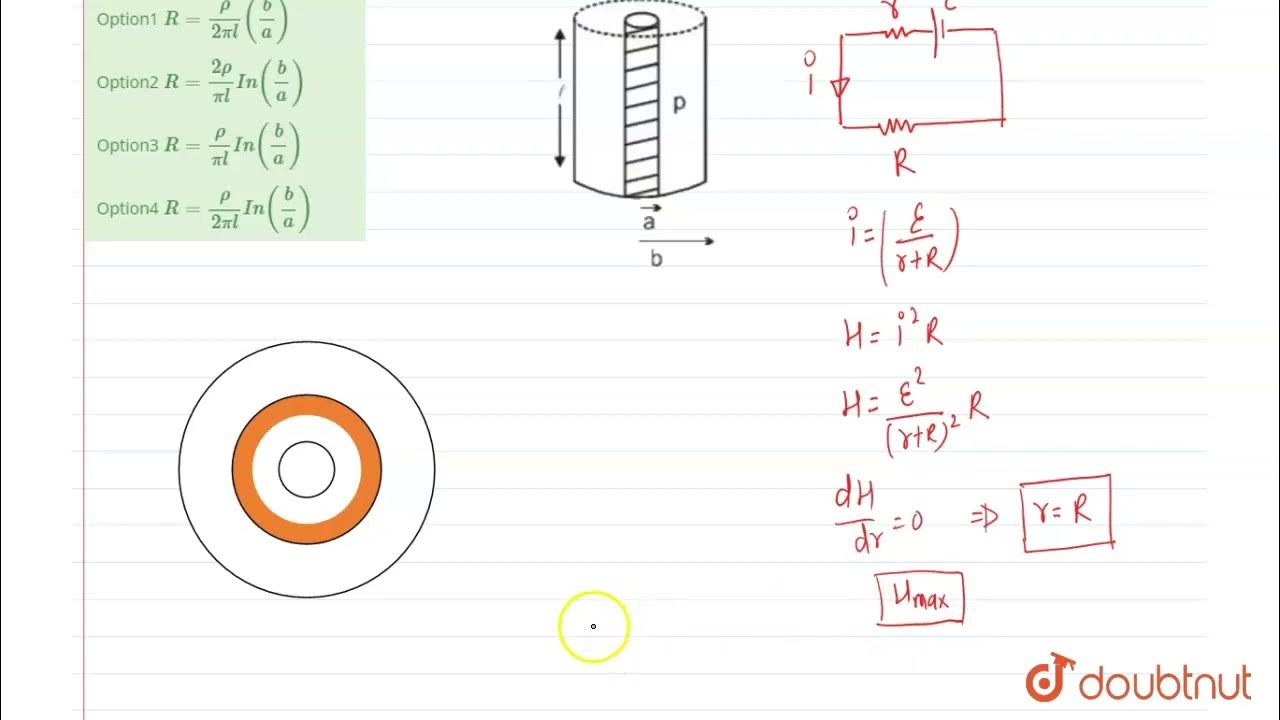 Option1 R = ρ/2πl (b/a)
Option2 R = 2ρ/πl In(b/a)
Option3 R = ρ/πl In(b/a)
Option4 R = ρ/2πl In(b/a)
p
a
b
i
R
i = (ε/r+R)
H = i²R
H = ε²/(r+R)² R
dH/dr = 0 ⇒ r = R
Hmax
doubtnut